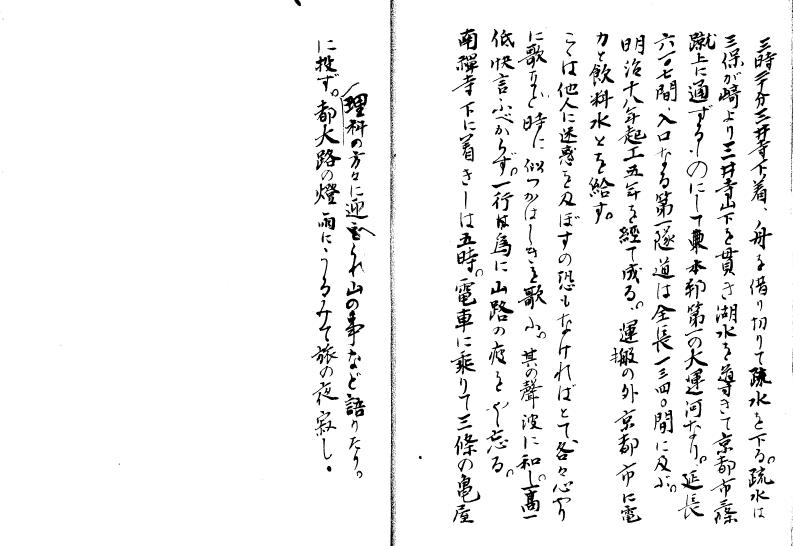 三時三十分三井寺下着、舟を借り切りて疏水を下る。疏水は
三保が崎より三井寺山下を貫き湖水を導きて京都市三條
蹴上に通ずるものにして東本邦第一の大運河なり。延長
六一〇七間、入口なる第一隧道は全長一三四〇間に及ぶ。
明治十八年起工五年を経て成る。運搬の外京都市に電
力と飲料水とを給す。
こゝは他人に迷惑を及ぼすの恐もなければとて各々心やり
に歌など時に似つかはしきを歌ふ。其の聲波に和し高一
低快言ふべからず。一行は為に山路の疲をも忘る。
南禪寺下に着きしは五時。電車に乗りて三條の亀屋
に投ず。都大路の燈雨にうるみて旅の夜寂し。
理科の方々に迎へられ山の事など語りたり。